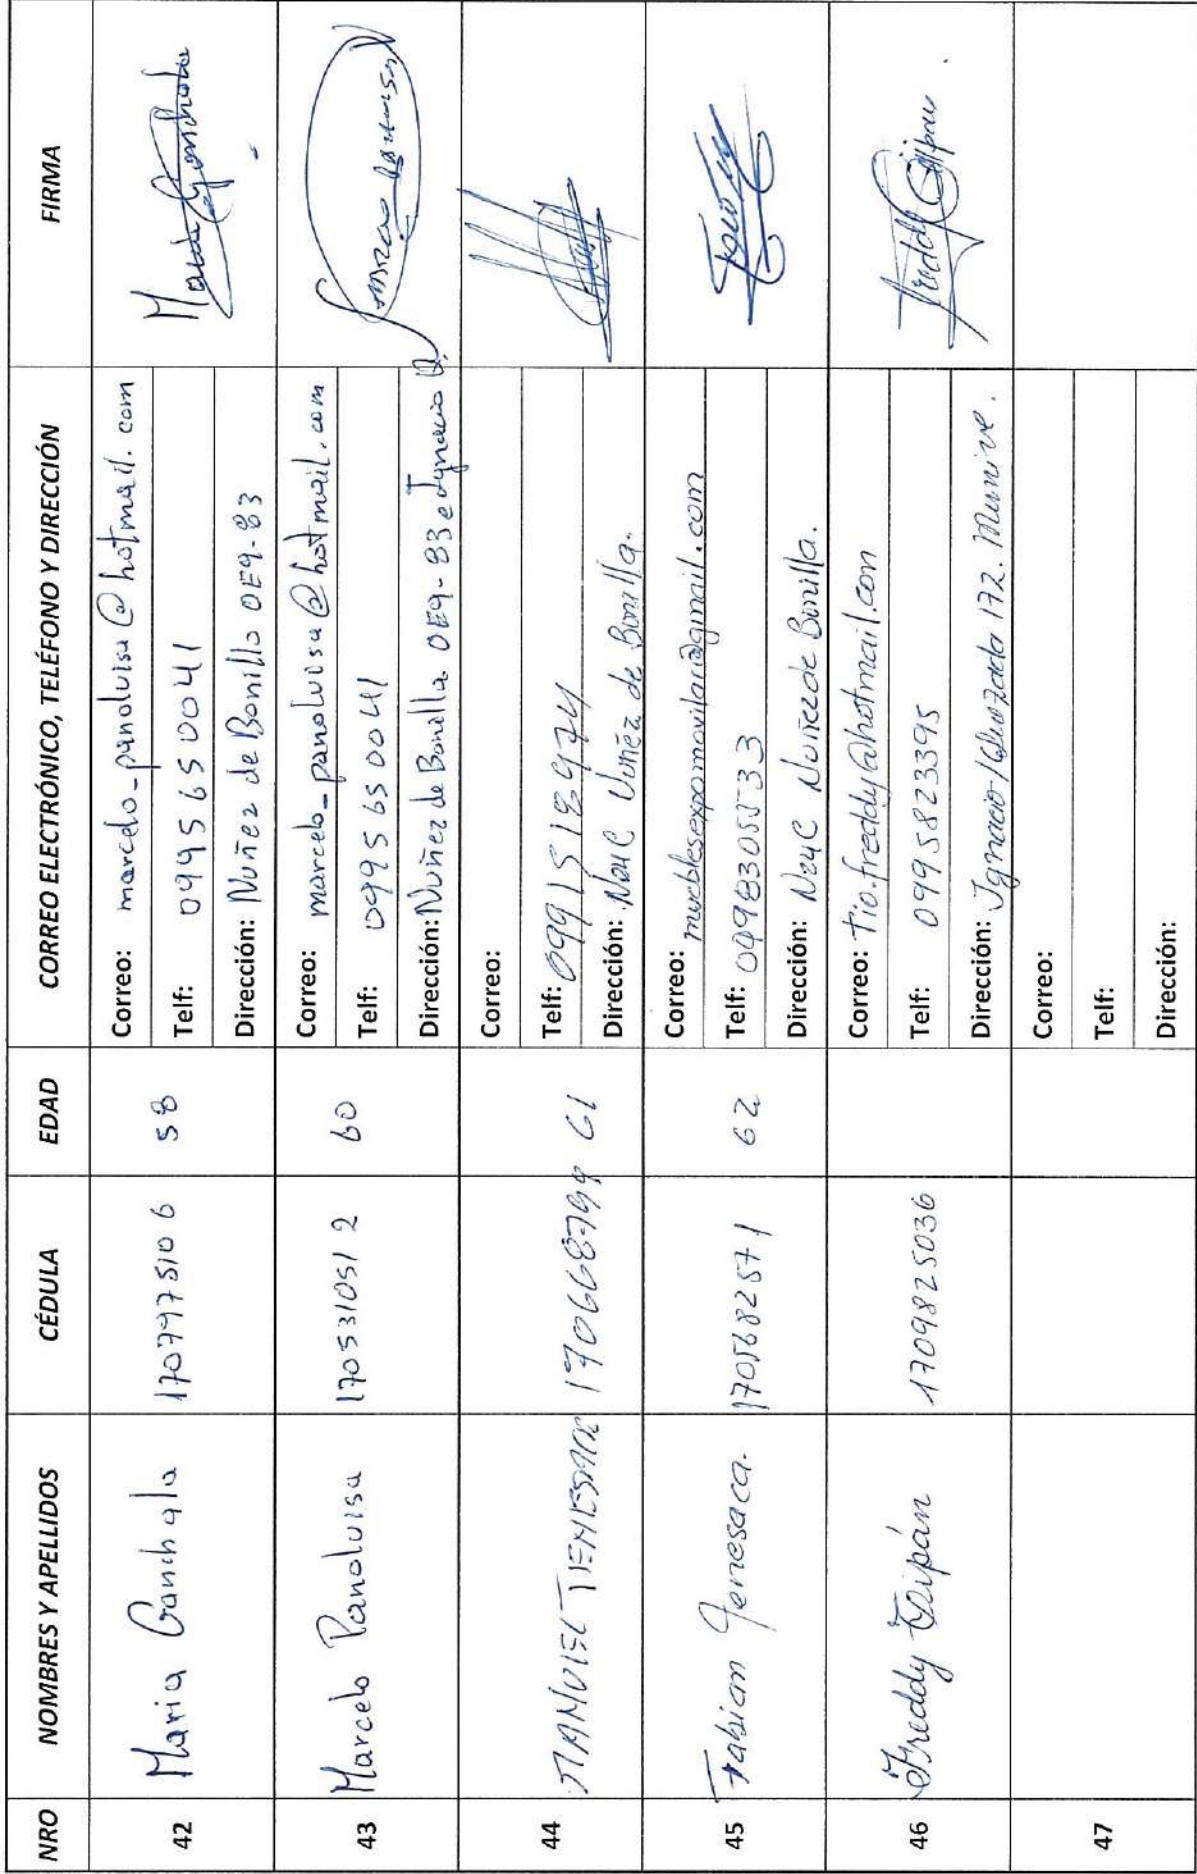 NRO NOMBRES Y APELLIDOS CÉDULA EDAD CORREO ELECTRÓNICO, TELÉFONO Y DIRECCIÓN FIRMA
42 Maria Ganchala 1707975106 58
Correo: marcelo_panoluisa@hotmail.com
Telf: 0995650041
Dirección: Nuñez de Bonilla OE9-83
43 Marcelo Panoluisa 1705310512 60
Correo: marcelo_panoluisa@hotmail.com
Telf: 0995650041
Dirección: Nuñez de Bonilla OE9-83 e Ignacio Q.
44 MANUEL 1706687999 61
Correo:
Telf: 0991518974
Dirección: N24C Nuñez de Bonilla.
45 Fabian Tenesaca. 1705682571 62
Correo: mueblesexpomovilar@gmail.com
Telf: 0998305533
Dirección: N24C Nuñez de Bonilla.
46 Freddy Toipán 1709825036
Correo: tio.freddy@hotmail.con
Telf: 0995823395
Dirección: Ignacio /Quezada 172. Munive.
47
Correo:
Telf:
Dirección: